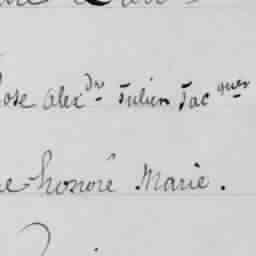 ose Alex^dre Julien Jac^ques
e-honoré Marie.